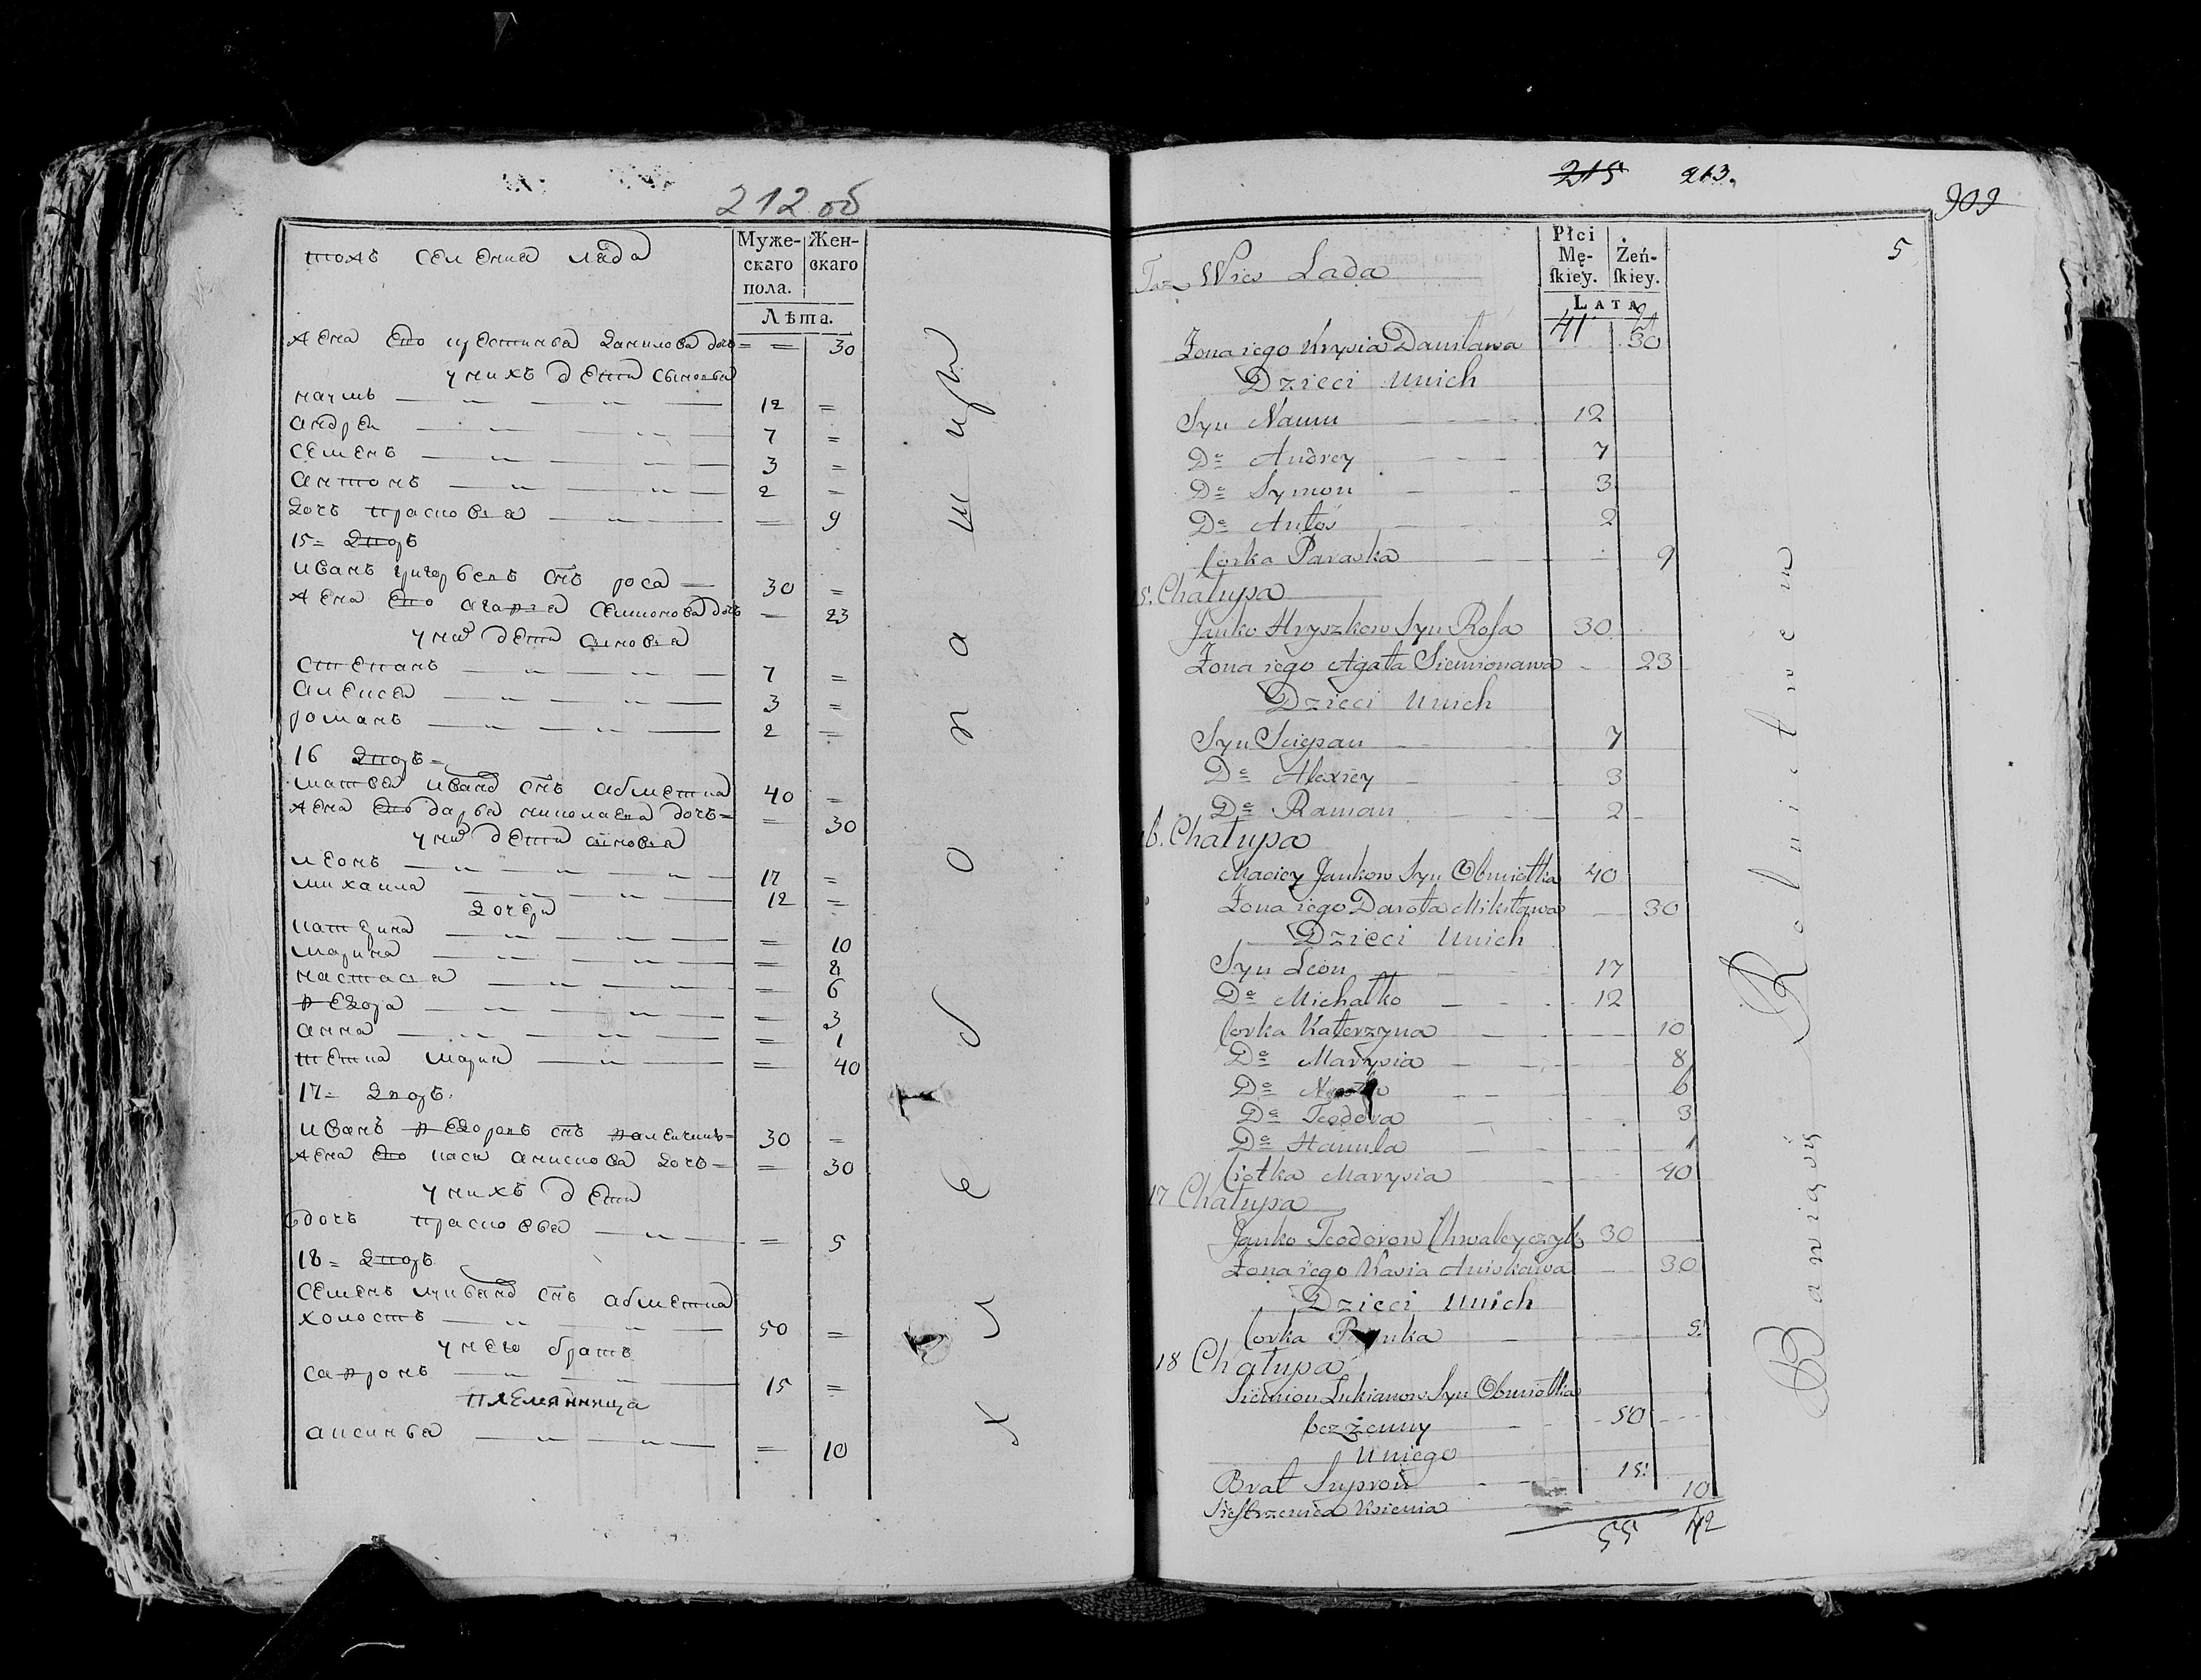 212 об
тожъ селения лада
Муже-
скаго
пола.
Жен-
скаго
Лѣта.
жена его устинья данилова дочь = = 30
у нихъ дети сыновья
наумъ 12 =
андреи 7 =
семенъ 3 =
антонъ 2 =
дочь прасковья = 9
15= дворъ
иванъ григорьевъ снъ роса 30 =
жена его агафья семионова дочь = 23
у них дети сыновья
степанъ 7 =
алексеи 3 =
романъ 2 =
16 дворъ =
матвеи иванов снъ абметка 40 =
жена его дарья николаева дочь = = 30
у них дети сыновья
леонъ 17 =
михаила 12 =
дочери
катерина = 10
марина = 8
настасья = 6
федора = 3
анна = 1
тетка марья = 40
17= дворъ.
иванъ федоровъ снъ 30 =
жена его кася анискова дочь = = 30
у нихъ дети
дочь прасковья = 5
18= дворъ
семенъ снъ абметка
холостъ 50 =
у него братъ
сафронъ 15 =
племянница
аксинья = 10
хлебопашцы
215 213.
909
5
Taż Wieś Lada
Płci
Mę-
ſkiey.
Żeń-
ſkiey.
Lata
41
Żona iego Krysia Daniława 30
Dzieci u nich
Syn Naum 12
De Andrey 7
De Symon 3
De Antoś 2
Corka Paraska 9
5. Chałupa
Janko Hryszkow Syn Rosa 30
Żona iego Agata Siemionawa 23
Dzieci u nich
Syn Sciepan 7
De Alexiey 3
De Raman 2
16. Chałupa
Maciey Jankow Syn Obmiotka 40
Żona iego Darota Mikitawa 30
Dzieci u nich
Syn Leon 17
De Michałko 12
Corka Katerzyna 10
De Marysia 8
De 6
De Teodora 3
De Hanula 1
Ciotka Marysia 40
17 Chałupa
Janko Teodorow Chwaleyczyk 30
Żona iego Kasia Aniskawa 30
Dzieci u nich
Corka 5.
18 Chałupa
Siemion Lukianow Syn Obmiotka
bezżenny 50
U niego
Brat Supron 15.
Siestrzenica Ksienia 10
55 42
Bawią się Rolnictwem